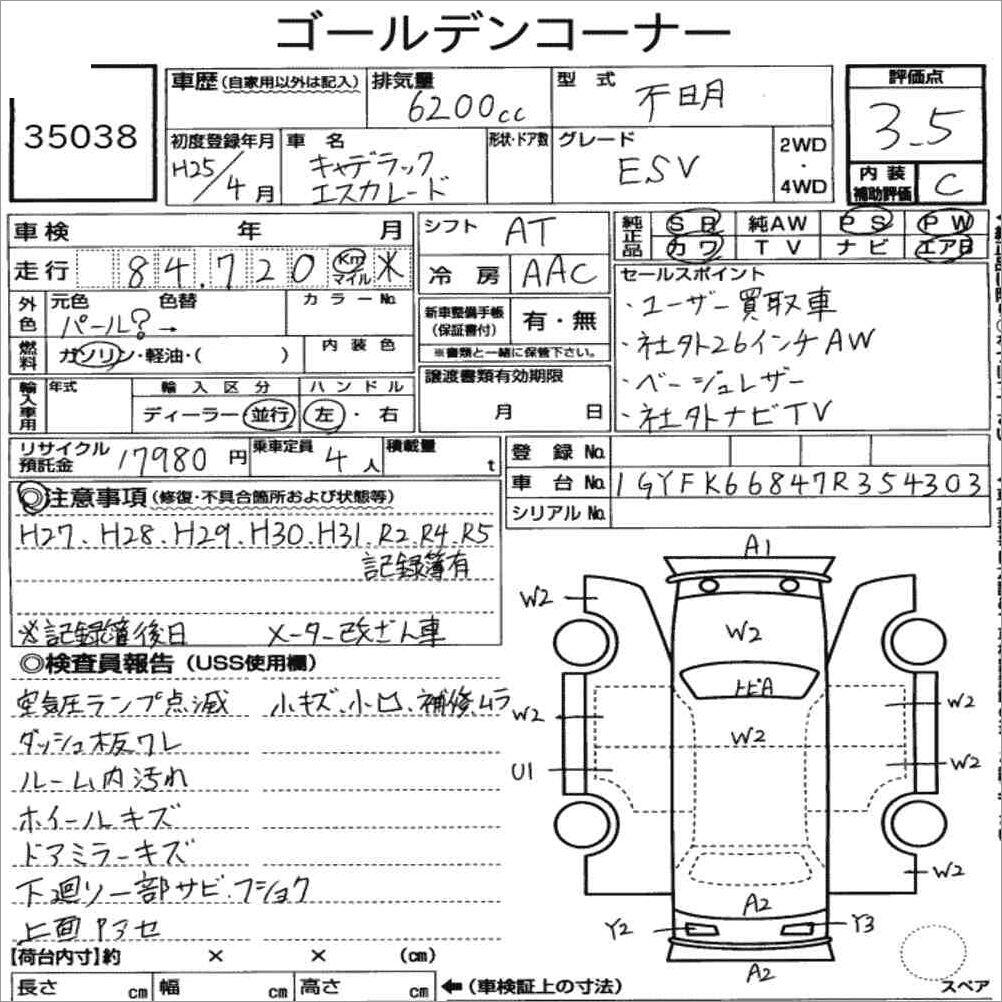 ゴールデンコーナー
35038
車歴(自家用以外は記入) 排気量 6200cc 型式 不明 評価点 3.5
初度登録年月 H25/4月 車名 キャデラック エスカレード 形状・ドア数 グレード ESV 2WD・4WD 内装補助評価 C
車検 年 月 シフト AT 純正品 SR 純AW PS PW
走行 84.720 Km マイル ※ 冷房 AAC カワ TV ナビ エアB
外色 元色 色替 カラーNo. パール?→
新車整備手帳(保証書付) 有・無
※書類と一緒に保管下さい。
燃料 ガソリン・軽油・( ) 内装色
輸入車用 年式 輸入区分 ディーラー 並行 ハンドル 左・右
譲渡書類有効期限 月 日
セールスポイント
・ユーザー買取車
・社外26インチAW
・ベージュレザー
・社外ナビTV
リサイクル預託金 17980円 乗車定員 4人 積載量 t
登録No.
車台No. 1GYFK66847R354303
シリアルNo.
◎注意事項(修復・不具合箇所および状態等)
H27.H28.H29.H30.H31.R2.R4.R5
記録簿有
※記録簿後日 メーター改ざん車
◎検査員報告(USS使用欄)
空気圧ランプ点滅 小キズ、小凹、補修ムラ
ダッシュ板ワレ
ルーム内汚れ
ホイールキズ
ドアミラーキズ
下廻り一部サビ.フショク
上面アセ
A1
W2
W2
トビA
W2 W2
W2
U1 W2
W2
A2
Y2 Y3
A2
スペア
【荷台内寸】約 × × (cm)
長さ cm 幅 cm 高さ cm ←(車検証上の寸法)